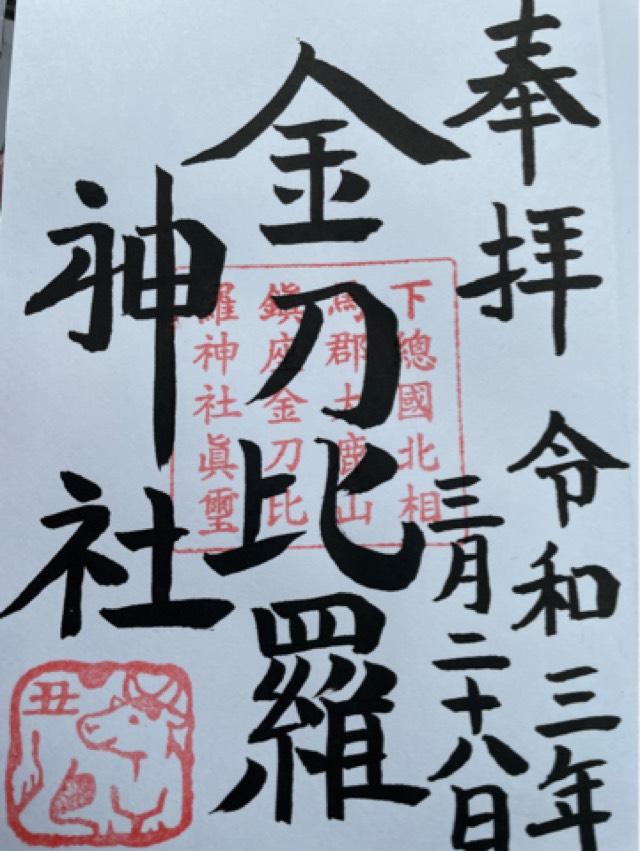 奉拝
令和三年
三月二十八日
金刀比羅
神社
下總國北相
馬郡大鹿山
鎮座金刀比
羅神社眞璽
丑